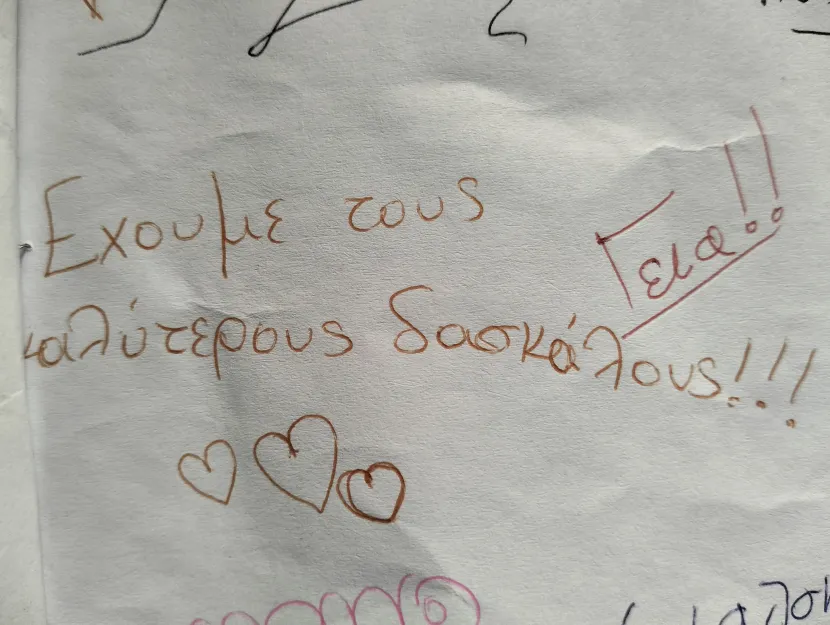 Εχουμε τους
Γεια!!
καλύτερους δασκάλους!!!